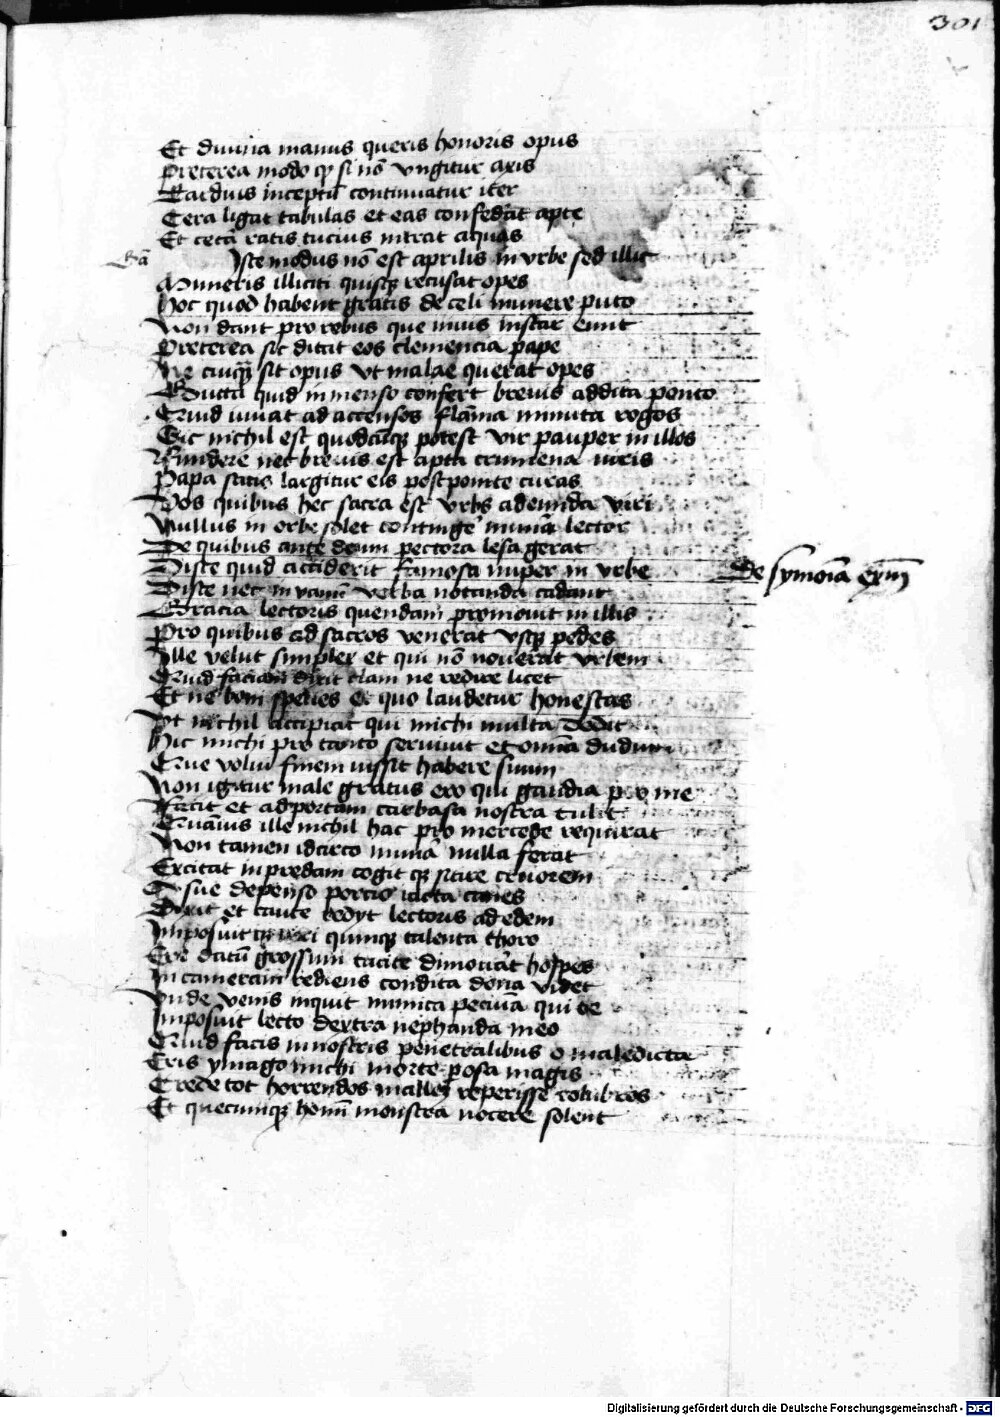 301
Et divina manus queris honoris opus
Preterea modo qͥ si nō ungitur axis
Tardius inceptū continuatur iter
Cera ligat tabulas et eas confederat apte
Et cetā ratis tucius intrat aquas
Iste modus nō est aprilis in urbe sed illic
Muneris illiciti quisqȝ recusat opes
Hoc quod habent gratis de celi munere puto
Non dant pro rebus que instar eunt
Preterea sic ditat eos clemencia pape
Ne cuiqȝ sit opus ut malae querat opes
Gutta quid inmenso confert brevis addita ponto
Quid iuvat ad accensos flāma minuta rogos
Sic nichil est quodcūqȝ potest vir pauper in illos
Fundere nec brevis est apta crumena viris
Papa satis largitur eis postponite curas
Vos quibus hec sacra est urbs adeunda viri
Nullus in orbe solet contingē lector
De quibus ante deum pectora lesa gerat
Disce quid acciderit famosa nuper in urbe
De symoīa exm
Disce nec in vanū verba notanda cadant
Gracia lectoris quendam promovit in illis
Pro quibus ad sacros venerat usqȝ pedes
Ille velut simplex et qui nō noverat urbem
Quid faciam dixit clam ne redire licet
Et ne boni species et quo laudetur honestas
Ut nichil accipiat qui michi multa dedit
Hic michi pro tanto servivit et omīa dudum
Que volui finem iussit habere suum
Non igitur male gratus ero qui gaudia pro me
Fecit et ad portam carbasa nostra tulit
Quāvis ille nichil hac pro mercede requirat
Non tamen idcirco nulla ferat
Excitat in predam cogit qȝ sitire cruorem
sue depenso porcio iacta canes
Dixit et caute redyt lectoris ad edem
Imposuit quinqȝ talenta thoro
datū grossum tacite hospes
In cameram rediens condita dona videt
Unde venis inquit inimica pecuīa qui te
Imposuit lecto dextra nephanda meo
Quid facis in nostris penetralibus o maledicta
Eris ymago michi morte posa magis
Crede tot horrendos mallem reperisse colubros
Et quecumqȝ homī monstra nocere solent
Digitalisierung gefördert durch die Deutsche Forschungsgemeinschaft - DFG